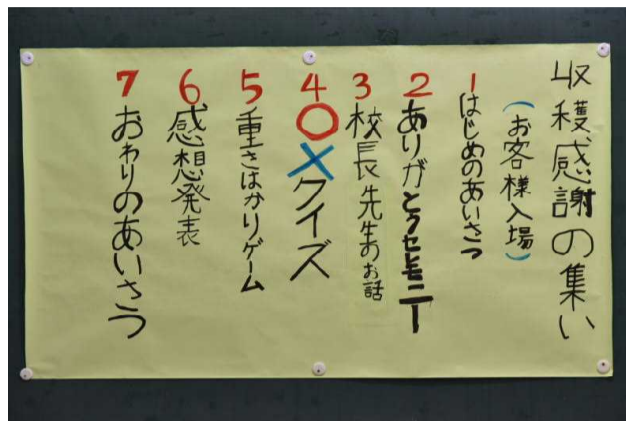 収穫感謝の集い
(お客様入場)
1 はじめのあいさつ
2 ありがとうセレモニー
3 校長先生のお話
4 ○×クイズ
5 重さはかりゲーム
6 感想発表
7 おわりのあいさつ